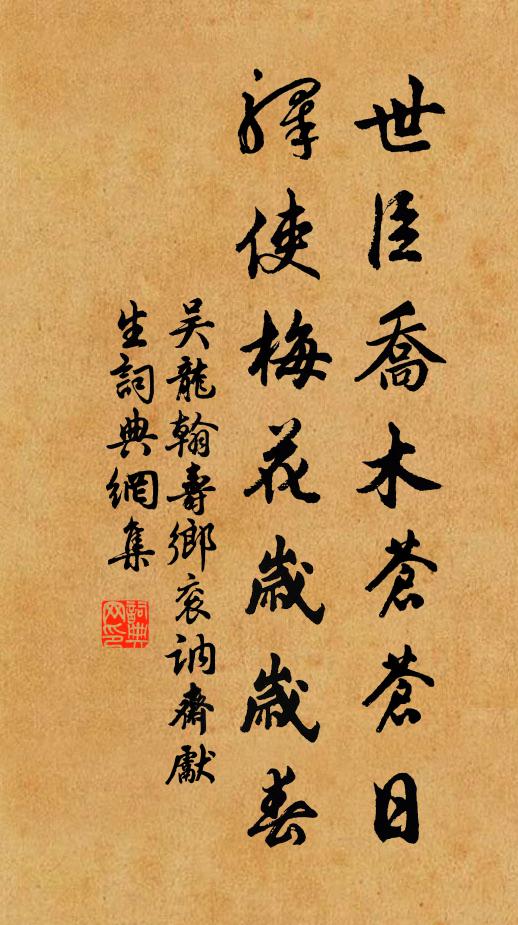 世臣喬木蒼蒼日
驛使梅花歲歲春
吴龍翰壽鄉衮訥齋獻
生詞典網集
詞典网印